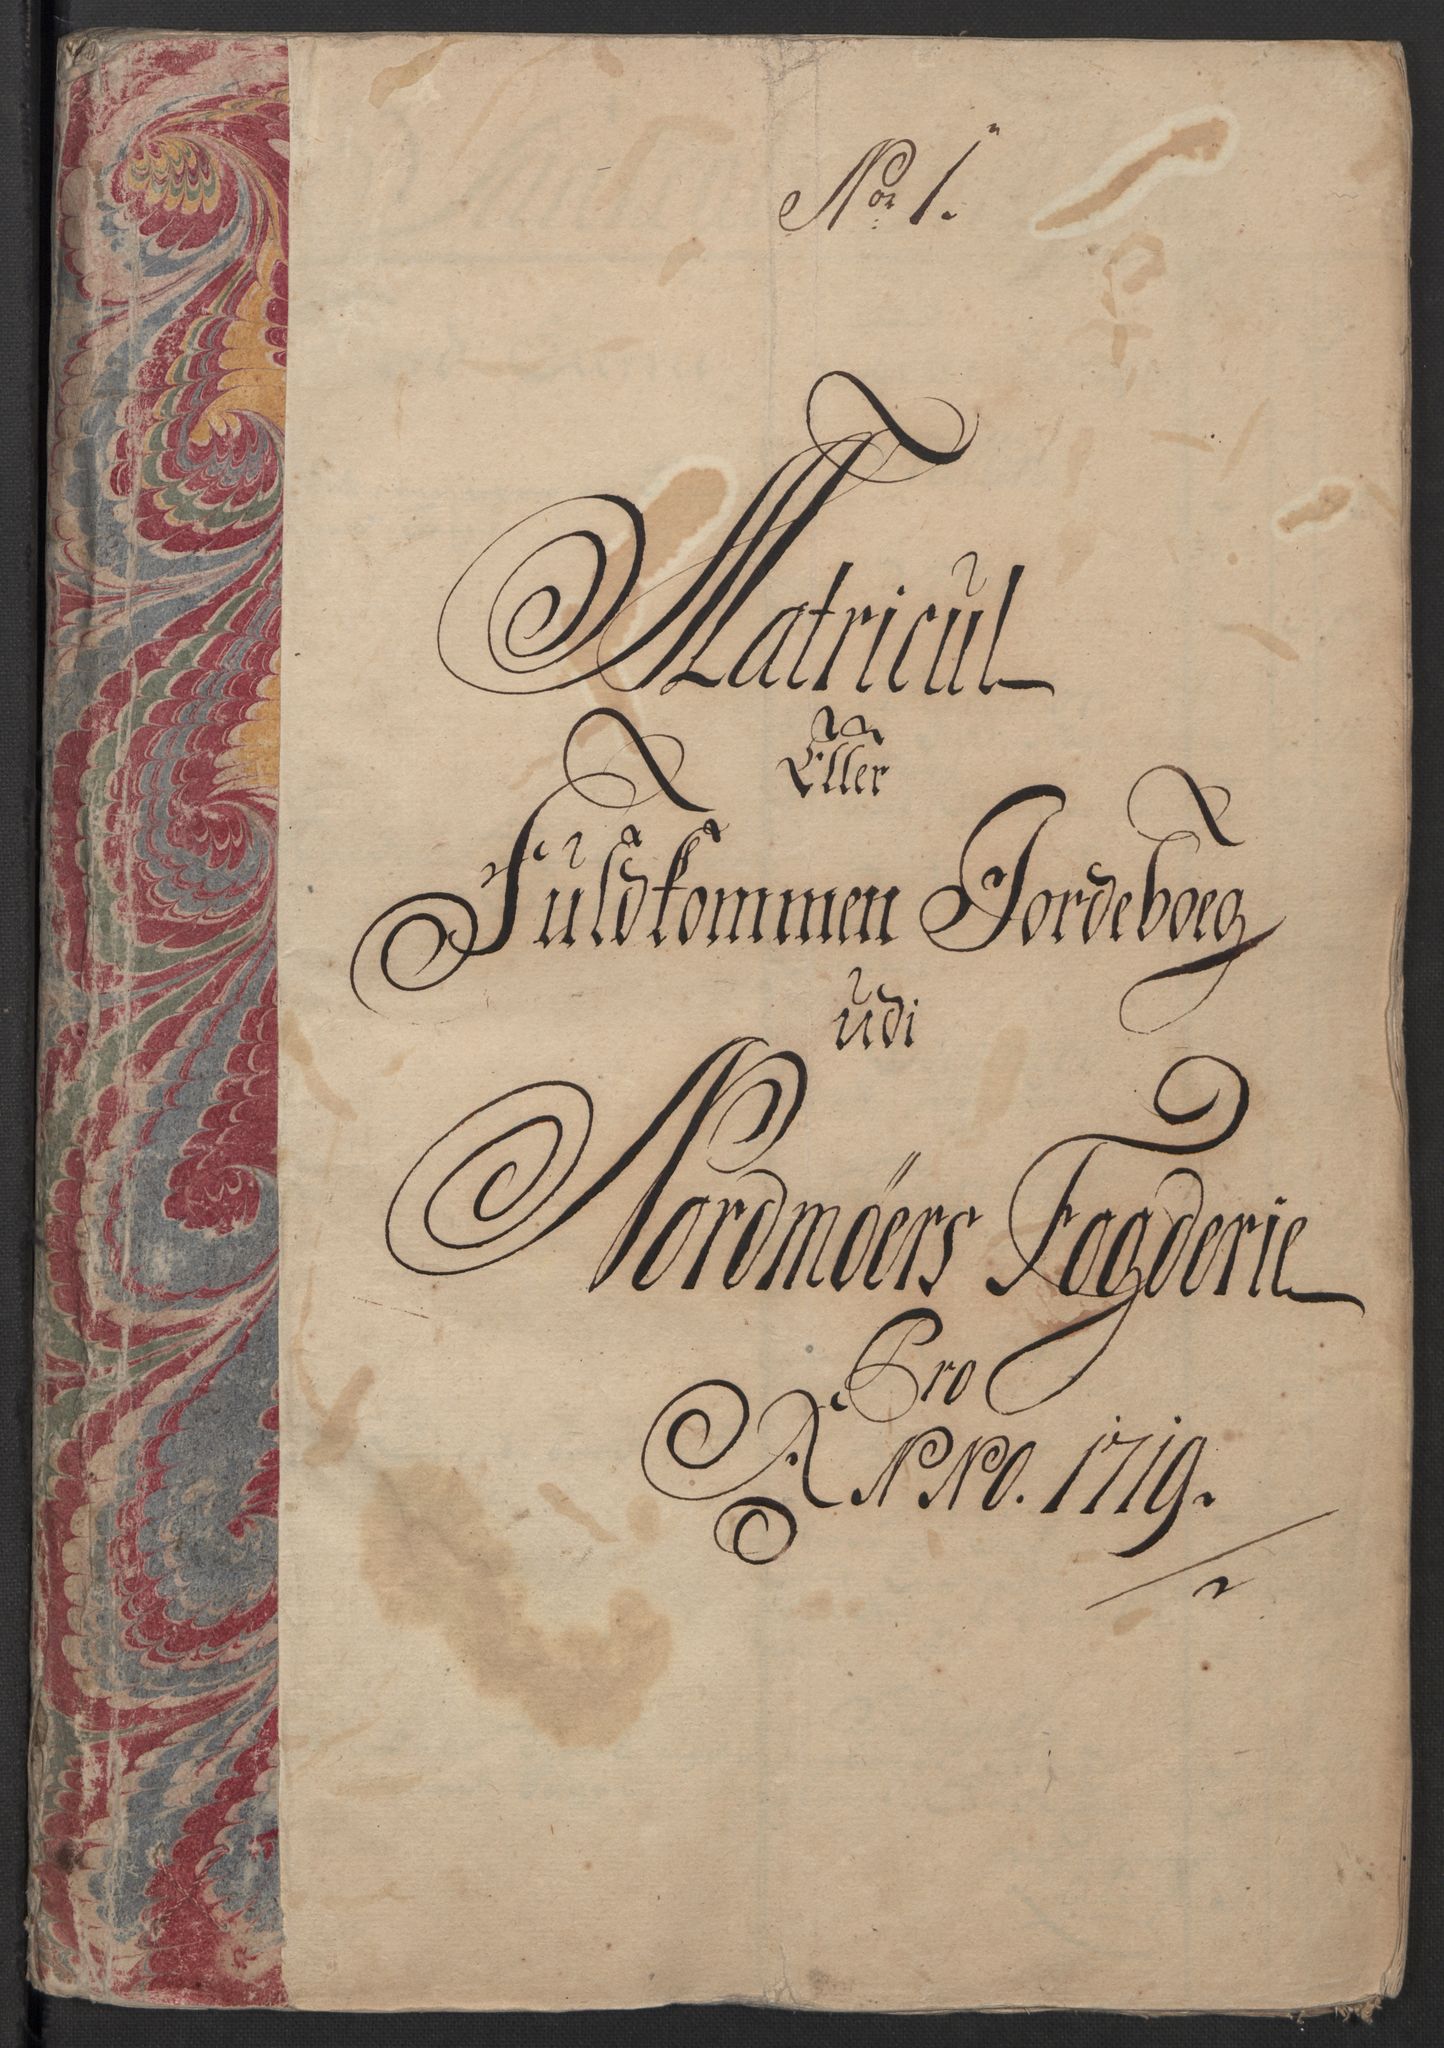 No. 1.
Matricul
Eller
Fuldkommen Jordeboeg
udi
Nordmöers Fogderie
Pro
ANNO. 1719.